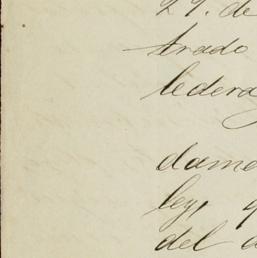 29. de
trado
ledera
dame
ley, q
del d